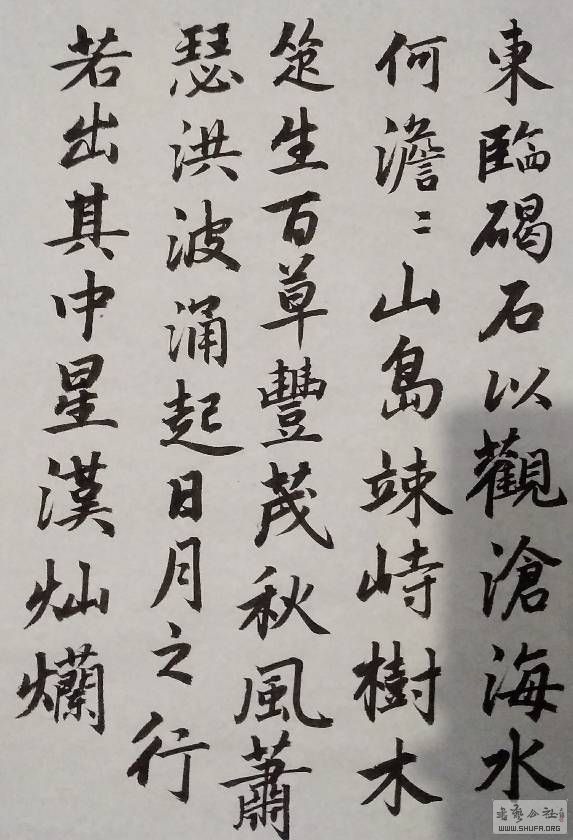 東臨碣石以觀滄海水
何澹〻山島竦峙樹木
丛生百草豐茂秋風蕭
瑟洪波涌起日月之行
若出其中星漢灿爛
书艺公社
WWW.SHUFA.ORG